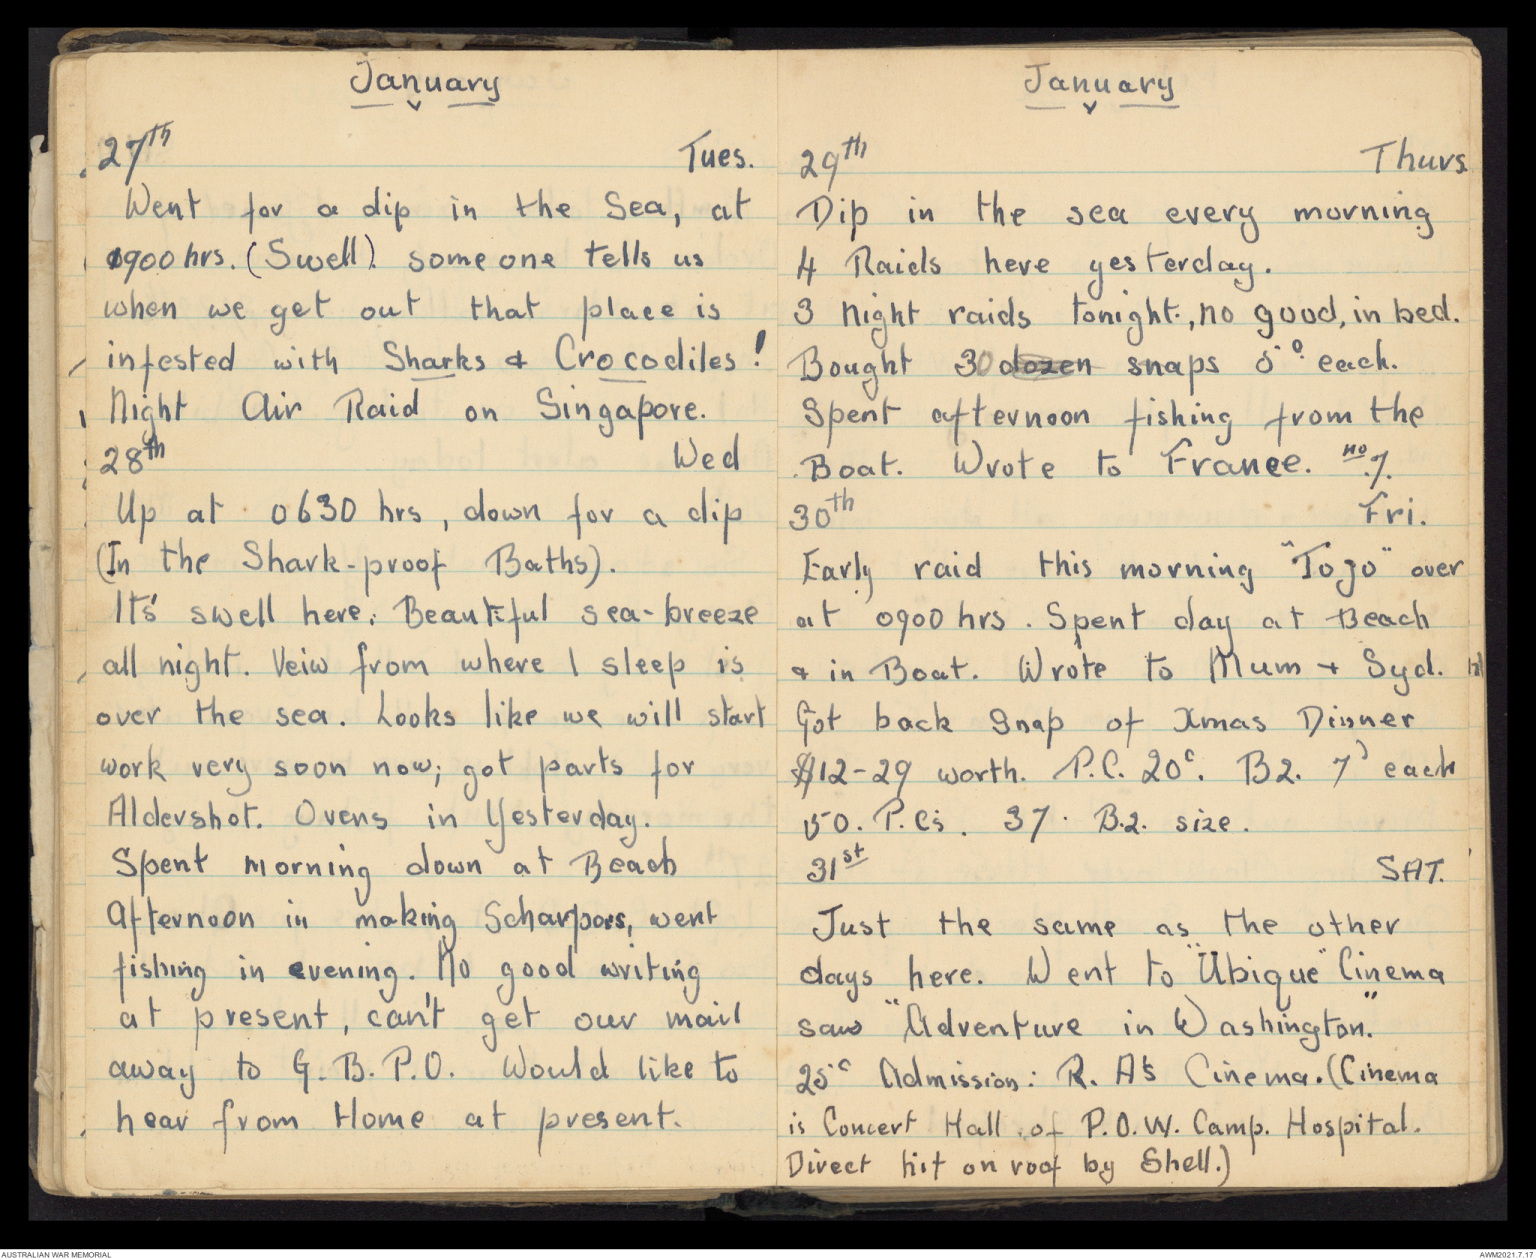 January
27th Tues.
Went for a dip in the Sea, at
0900 hrs. (Swell). someone tells us
when we get out that place is
infested with Sharks & Crocodiles!
Night Air Raid on Singapore.
28th Wed
Up at 0630 hrs, down for a dip
(In the Shark-proof Baths).
It's swell here. Beautiful sea-breeze
all night. Veiw from where I sleep is
over the sea. Looks like we will start
work very soon now; got parts for
Aldershot. Ovens in Yesterday.
Spent morning down at Beach
Afternoon in making Scharpoes, went
fishing in evening. No good writing
at present, can't get our mail
away to G.B.P.O. Would like to
hear from Home at present.
January
29th Thurs
Dip in the sea every morning
4 Raids here yesterday.
3 Night raids tonight, no good, in bed.
Bought 30 dozen snaps 5c each.
Spent afternoon fishing from the
Boat. Wrote to France. no 7.
30th Fri.
Early raid this morning "Tojo" over
at 0900 hrs. Spent day at Beach
& in Boat. Wrote to Mum + Syd.
Got back Snap of Xmas Dinner
$12-29 worth. P.C. 20c. B2. 7 each
50. P.C's. 37. B.2. size.
31st SAT.
Just the same as the other
days here. Went to "Ubique" Cinema
saw "Adventure in Washington."
25c Admission: R. A's Cinema. (Cinema
is Concert Hall of P.O.W. Camp. Hospital.
Direct hit on roof by Shell.)
AUSTRALIAN WAR MEMORIAL
AWM2021.7.17